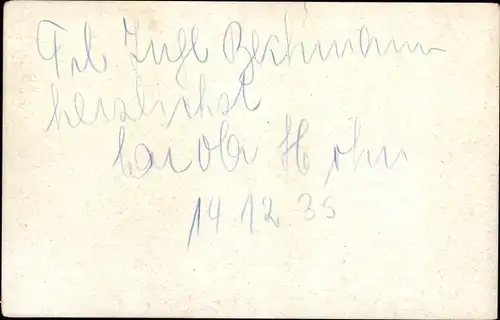 Frl Inge Bechmann
herzlichst
Carola Höhn
14 12 35